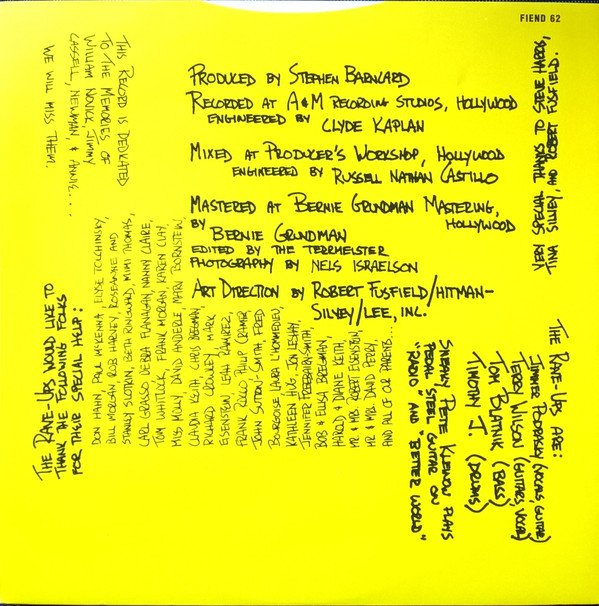 FIEND 62
PRODUCED BY STEPHEN BARNCARD
RECORDED AT A&M RECORDING STUDIOS, HOLLYWOOD
ENGINEERED BY
CLYDE KAPLAN
MIXED AT PRODUCER'S WORKSHOP, HOLLYWOOD
ENGINEERED BY RUSSELL NATHAN CASTILLO
MASTERED AT BERNIE GRUNDMAN MASTERING,
HOLLYWOOD
BY
BERNIE GRUNDMAN
EDITED BY THE TERRMEISTER
PHOTOGRAPHY BY NELS ISRAELSON
ART DIRECTION BY ROBERT FUSFIELD/HITMAN-
SILVEY/LEE, INC.
VERY SPECIAL THANKS TO STEVE HARRIS,
TINA SILVEY, AND ROBERT FUSFIELD.
THIS RECORD IS DEDICATED
TO THE MEMORIES OF
WILLIAM NOVICK, JIMMY
CASSELL, NEWMAN, & ANNIE...
WE WILL MISS THEM.
THE RAVE-UPS WOULD LIKE TO
THANK THE FOLLOWING FOLKS
FOR THEIR SPECIAL HELP:
DON HAHN, PAUL MCKENNA, ELYSE TOLCHINSKY,
BILL MORGAN, ROB HARVEY, ROSEANNE AND
STANLEY SLOTKIN, BETH RINGWARD, MIMI THOMAS,
CARL GRASSO, DEBRA FLANAGAN, NANNY CLAIRE,
TOM WHITLOCK, FRANK MORGAN, KAREN CLAY,
MISS MOLLY, DAVID ANDERLE, MARK BORNSTEIN,
CLAUDIA KEITH, CHRIS BREGMAN,
RICHARD CROWLEY, MARK
EISENSTEIN, LEAH RAMIREZ,
FRANK COCCO, PHILIP CRAMER,
JOHN SUTTON-SMITH, FRED
BOURGOISE, LAURA L'HOMMEDIEU,
KATHLEEN HUG, JON LESHAY,
JENNIFER FREEBAIRN-SMITH,
BOB & ELLISA BREGMAN,
HAROLD & DIANNE KEITH,
MR & MRS. ROBERT EISENSTEIN,
MR & MRS. DAVID PERCY,
AND ALL OF OUR PARENTS...
THE RAVE-UPS ARE:
JIMMER PODRASKY (VOCALS, GUITAR)
TERRY WILSON (GUITARS, VOCAL)
TOM BLATNIK (BASS)
TIMOTHY J. (DRUMS)
SNEAKY PETE KLEINOW PLAYS
PEDAL STEEL GUITAR ON
"RADIO" AND "BETTER WORLD"